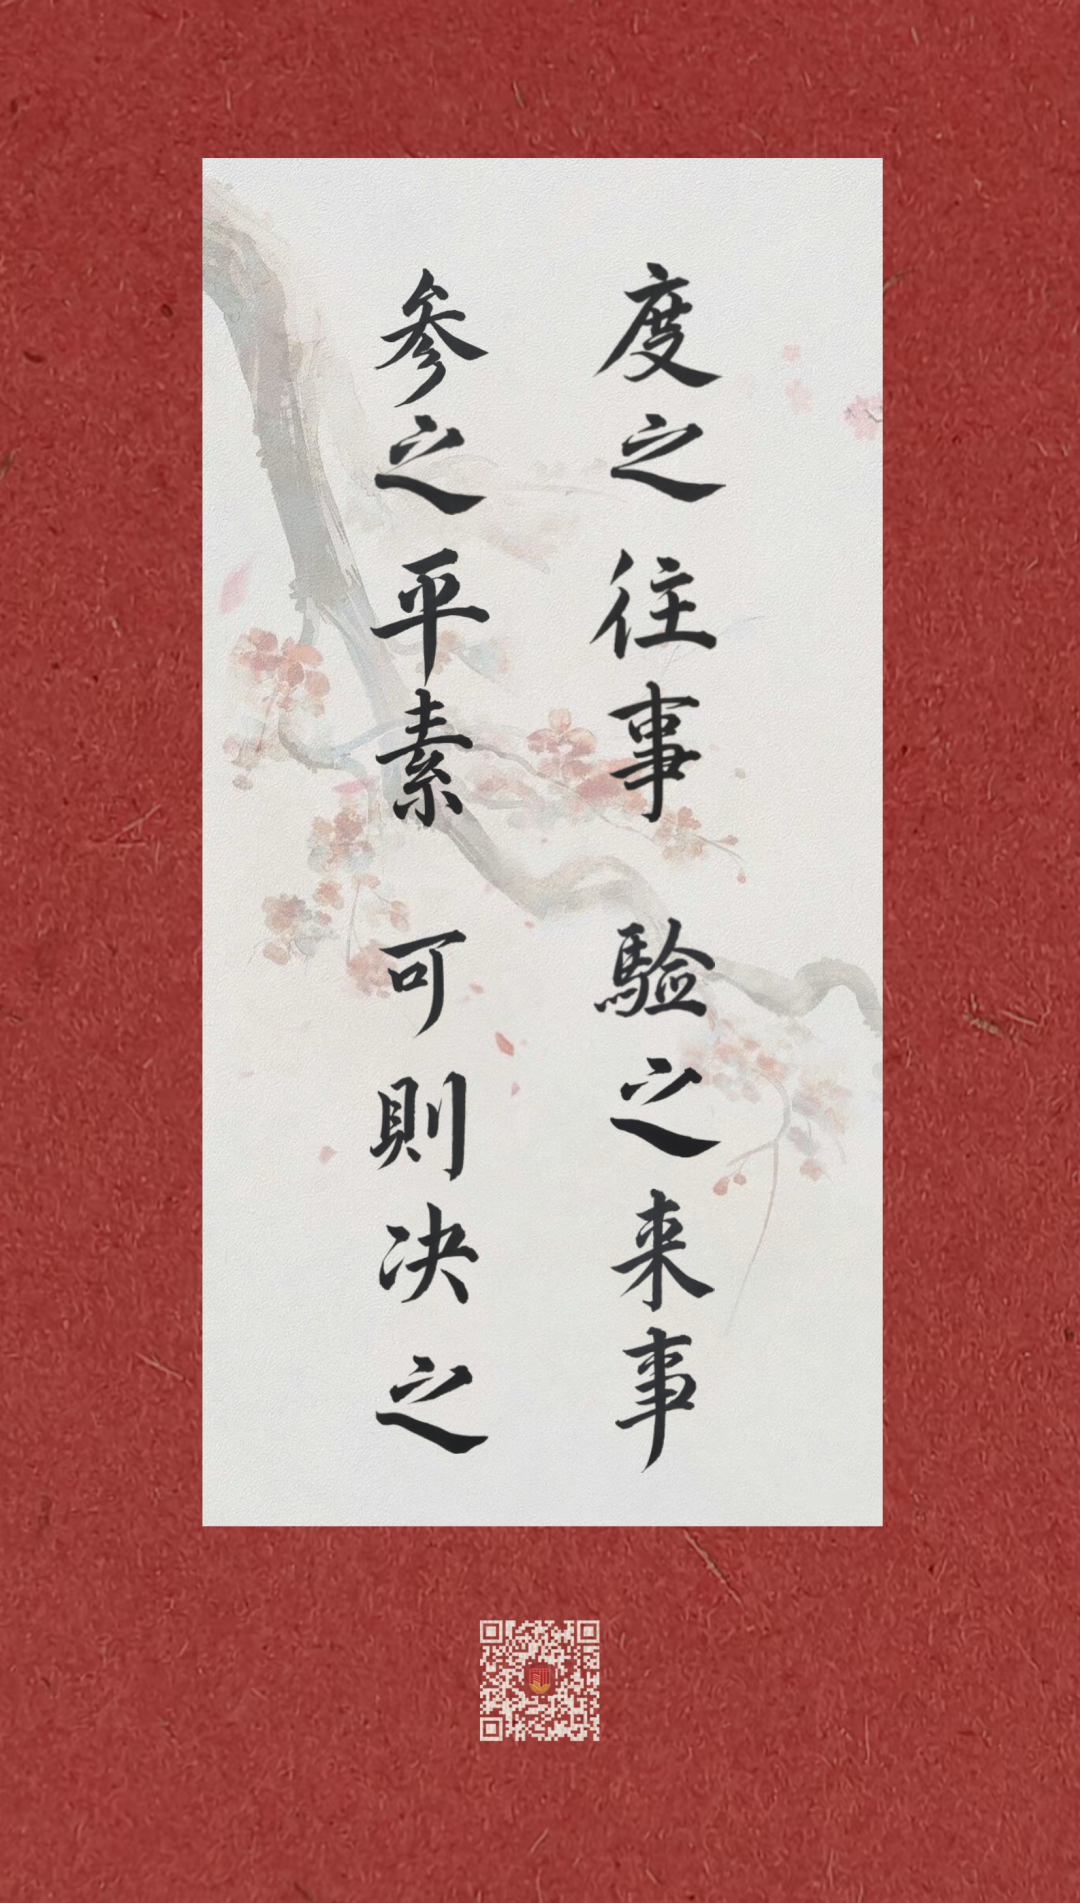 度之往事 驗之来事
参之平素 可則决之